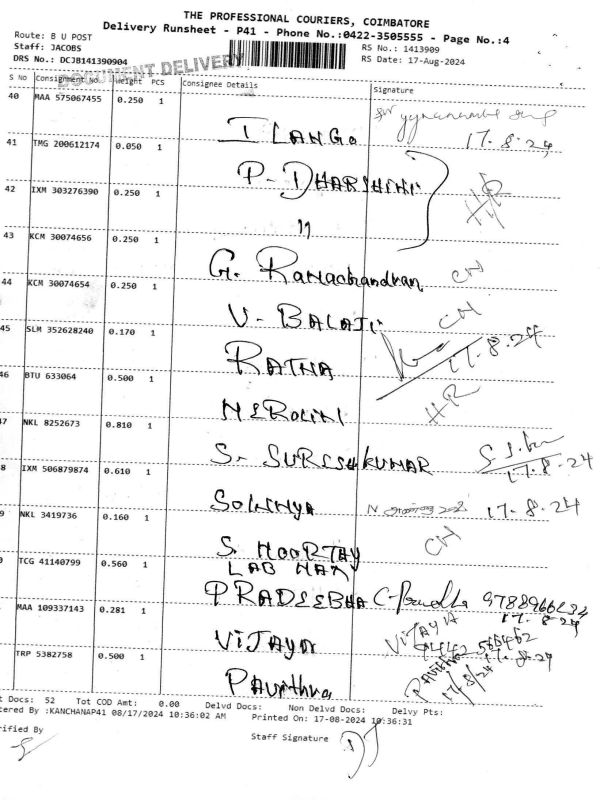 THE PROFESSIONAL COURIERS, COIMBATORE
Delivery Runsheet - P41 - Phone No.:0422-3505555 - Page No.:4
Route: B U POST
RS No.: 1413909
Staff: JACOBS
RS Date: 17-Aug-2024
DRS No.: DCJB141390904
DOCUMENT DELIVERY
S No Consignment No. Weight PCS Consignee Details Signature
40 MAA 575067455 0.250 1
ILANGO 17.8.24
41 TMG 200612174 0.050 1
P. DHARSHINI
42 IXM 303276390 0.250 1
HR
〃
43 KCM 30074656 0.250 1
G. Ramachandran CN
44 KCM 30074654 0.250 1
V. BALAJI CN
45 SLM 352628240 0.170 1
RATNA 17.8.24
46 BTU 633064 0.500 1
HR
47 NKL 8252673 0.810 1
S. SURESHKUMAR 17.8.24
8 IXM 506879874 0.610 1
SOWMYA 17.8.24
9 NKL 3419736 0.160 1
S. MOORTHY CN
TCG 41140799 0.560 1
LAB
PRADEEBHA 17.8.24
MAA 109337143 0.281 1
VIJAYA VIJAYA 17.8.24
TRP 5382758 0.500 1
Pavithra PAVITHRA 17/8/24
t Docs: 52 Tot COD Amt: 0.00 Delvd Docs: Non Delvd Docs: Delvy Pts:
tered By :KANCHANAP41 08/17/2024 10:36:02 AM Printed On: 17-08-2024 10:36:31
rified By
Staff Signature